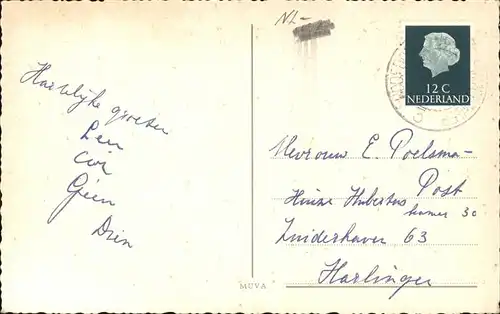 NL-
12 C
NEDERLAND
Hartelijke groeten
Leu
Cor
Gien
Drin
Mevrouw E. Poelsma-
Post
Huize Hubertus
kamer 30
Zuiderhaven 63
Harlingen
MUVA